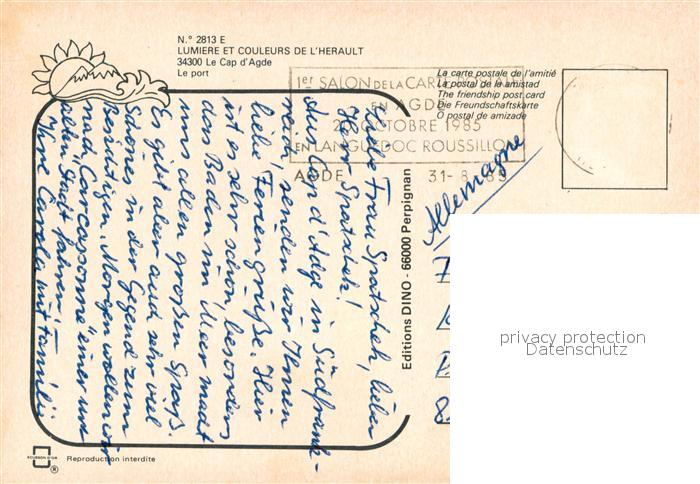 N.° 2813 E
LUMIERE ET COULEURS DE L'HERAULT
34300 Le Cap d'Agde
Le port
1er SALON DE LA CARTE POSTALE
EN AGDE
OCTOBRE 1985
EN LANGUEDOC ROUSSILLON
AGDE 31-8
La carte postale de l'amitié
La postal de la amistad
The friendship post card
Die Freundschaftskarte
O postal de amizade
Liebe Frau Spatschek, lieber
Herr Spatschek!
Aus Cap d'Adge in Südfrank-
reich senden wir Ihnen
liebe Feriengrüße. Hier
ist es sehr schön, besonders
das Baden im Meer macht
uns allen großen Spaß.
Es gibt aber auch sehr viel
Schönes in der Gegend zum
Besichtigen. Morgen wollen wir
nach "Carcassonne" einer
alten Stadt fahren!
Ihre mit Familie
Allemagne
Editions DINO - 66000 Perpignan
privacy protection
Datenschutz
ECUSSON D'OR
®
Reproduction interdite